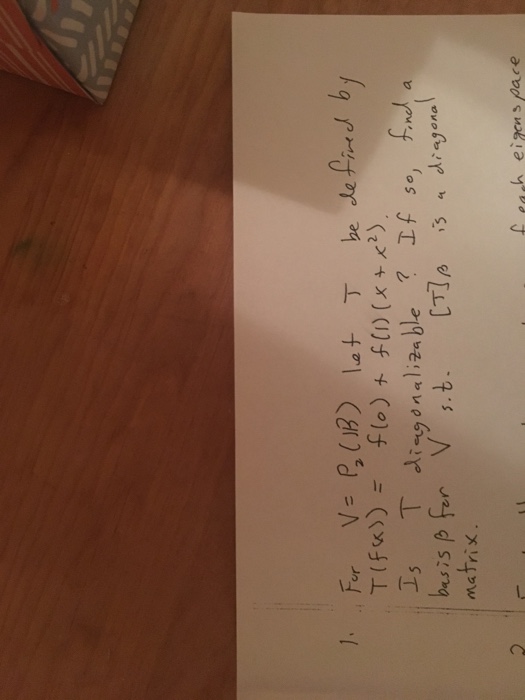 1. For V = P₂(ℝ) let T be defined by
T(f(x)) = f(0) + f(1)(x + x²).
Is T diagonalizable? If so, find a
basis β for V s.t. [T]β is a diagonal
matrix.
2 each eigenspace